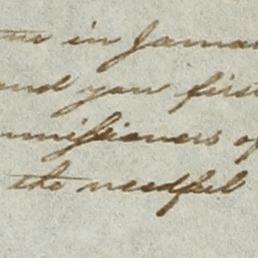 in Jamai
and you first
ommissioners of
the needful